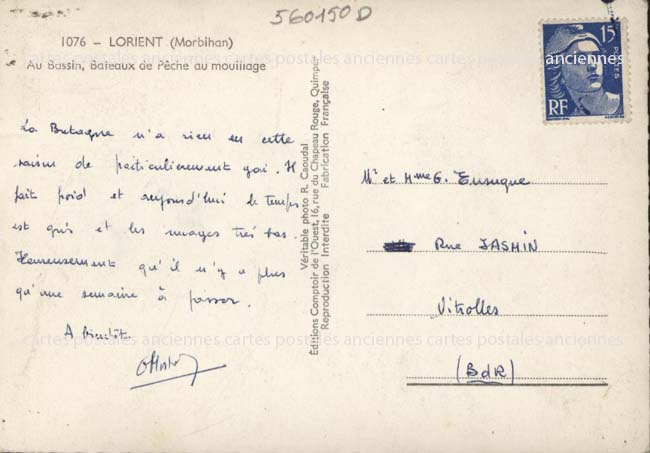 560150D
1076 – LORIENT (Morbihan)
Au Bassin, Bateaux de Pêche au mouillage
La Bretagne n'a rien en cette
saison de particulièrement gai. Il
fait froid et aujourd'hui le temps
est gris et les nuages très bas.
Heureusement qu'il n'y a plus
qu'une semaine à passer.
A Bientôt
Véritable photo R. Caoudal
Éditions Comptoir de l'Ouest, 16, rue du Chapeau Rouge, Quimper
Reproduction Interdite Fabrication Française
15
POSTES
RF
Mr et Mme G.
Rue JASMIN
Vitrolles
(BdR)
cartes postales anciennes cartes postales anciennes cartes postales anciennes
cartes postales anciennes cartes postales anciennes cartes postales anciennes